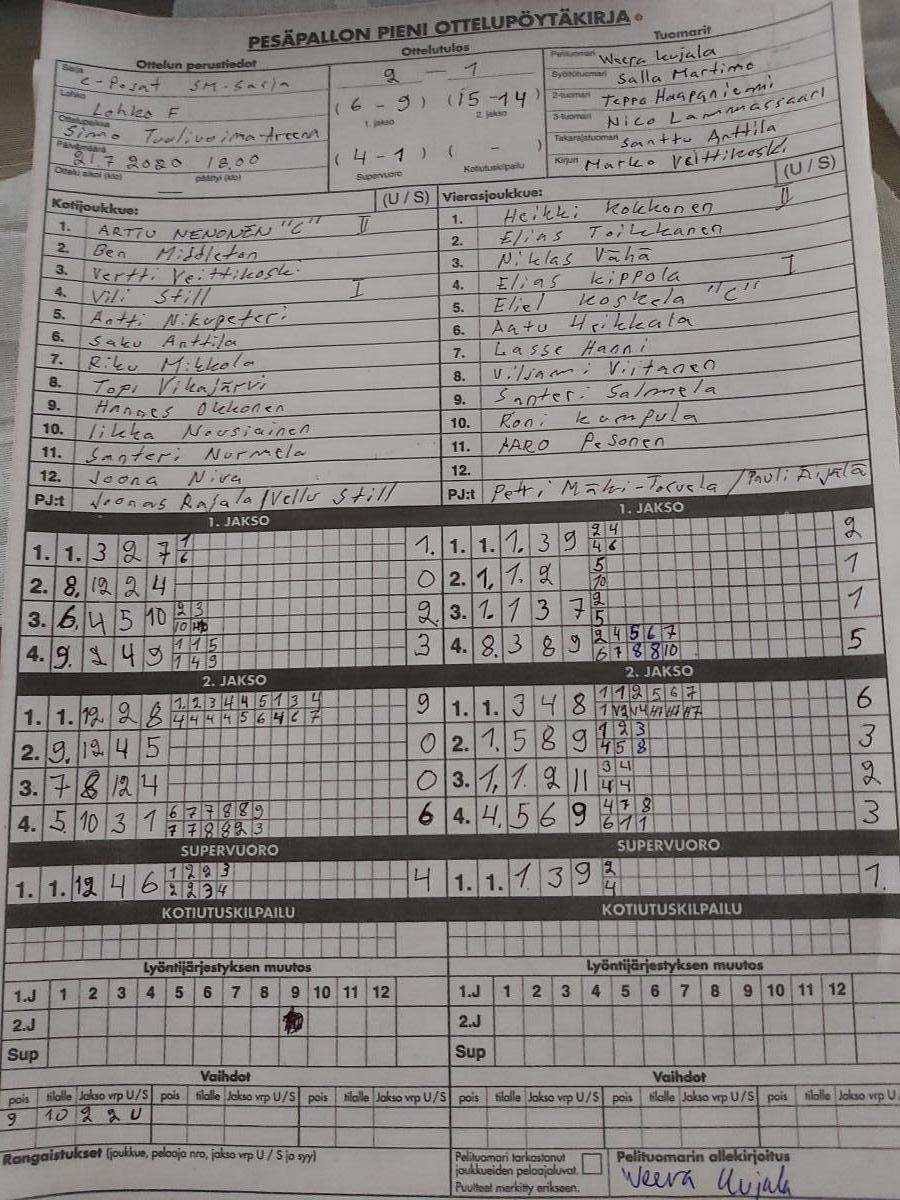 PESÄPALLON PIENI OTTELUPÖYTÄKIRJA
Ottelun perustiedot
Sarja C-Pojat SM-Sarja
Lohko Lohko F
Ottelupaikka Simo Tuulivoima-Areena
Päivämäärä 21.7 2020 18.00
Ottelu alkoi (klo) päättyi (klo)
Ottelutulos
2 - 1
(6 - 9) (15 - 14)
1. jakso 2. jakso
(4 - 1) ( - )
Supervuoro Kotiutuskilpailu
Tuomarit
Pelituomari Weera Kujala
Syöttötuomari Salla Martimo
2-tuomari Teppo Haapaniemi
3-tuomari Nico Lammassaari
Takarajatuomari Santtu Anttila
Kirjuri Marko Veittikoski
Kotijoukkue: (U / S)
1. ARTTU NENONEN "C" II
2. Ben Middleton
3. Vertti Veittikoski
4. Vili Still I
5. Antti Nikupeteri
6. Saku Anttila
7. Riku Mikkola
8. Topi Vikajärvi
9. Hannes Okkonen
10. Iikka Nousiainen
11. Santeri Nurmela
12. Joona Niva
PJ:t Joonas Rajala/Vellu Still
Vierasjoukkue: (U / S)
1. Heikki Kokkonen II
2. Elias Toikkanen
3. Niklas Vähä
4. Elias Kippola I
5. Eliel Koskela "C"
6. Aatu Heikkala
7. Lasse Hanni
8. Viljami Viitanen
9. Santeri Salmela
10. Roni Kumpula
11. AARO Pesonen
12.
PJ:t Petri Mäki-Torvela /Pauli Äijälä
1. JAKSO
1. 1. 3 2 7 1 1.
6
2. 8. 12 2 4 0
3. 6. 4 5 10 2 3 2.
10
4. 9. 2 4 9 1 1 5 3
1 4 9
1. JAKSO
1. 1. 1. 3 9 2 4 2
4 6
2. 1. 1. 2 5 1
10
3. 1. 1 3 7 2 1
5
4. 8. 3 8 9 2 4 5 6 7 5
6 7 8 8 10
2. JAKSO
1. 1. 12 2 8 1. 2 3 4 4 5 1 3 4 9
4 4 4 4 5 6 4 6 7
2. 9. 12 4 5 0
3. 7 8 12 4 0
4. 5. 10 3 1 6 7 7 8 8 9 6
7 7 8 8 2 3
2. JAKSO
1. 1. 3 4 8 1 1 2 5 6 7 6
2. 1. 5 8 9 1 2 3 3
4 5 8
3. 1. 1. 2 11 3 4 2
4 4
4. 4. 5 6 9 4 7 8 3
6 1 1
SUPERVUORO
1. 1. 12 4 6 1 2 2 3 4
2 2 3 4
SUPERVUORO
1. 1. 1. 3 9 2 1.
4
KOTIUTUSKILPAILU
KOTIUTUSKILPAILU
Lyöntijärjestyksen muutos
1.J 1 2 3 4 5 6 7 8 9 10 11 12
2.J
Sup
Lyöntijärjestyksen muutos
1.J 1 2 3 4 5 6 7 8 9 10 11 12
2.J
Sup
Vaihdot
pois tilalle Jakso vrp U/S pois tilalle Jakso vrp U/S pois tilalle Jakso vrp U/S
9 10 2 2 U
Vaihdot
pois tilalle Jakso vrp U/S pois tilalle Jakso vrp U/S pois tilalle Jakso vrp U
Rangaistukset (joukkue, pelaaja nro, jakso vrp U / S ja syy)
Pelituomari tarkastanut
joukkueiden pelaajaluvat.
Puutteet merkitty erikseen.
Pelituomarin allekirjoitus
Weera Kujala